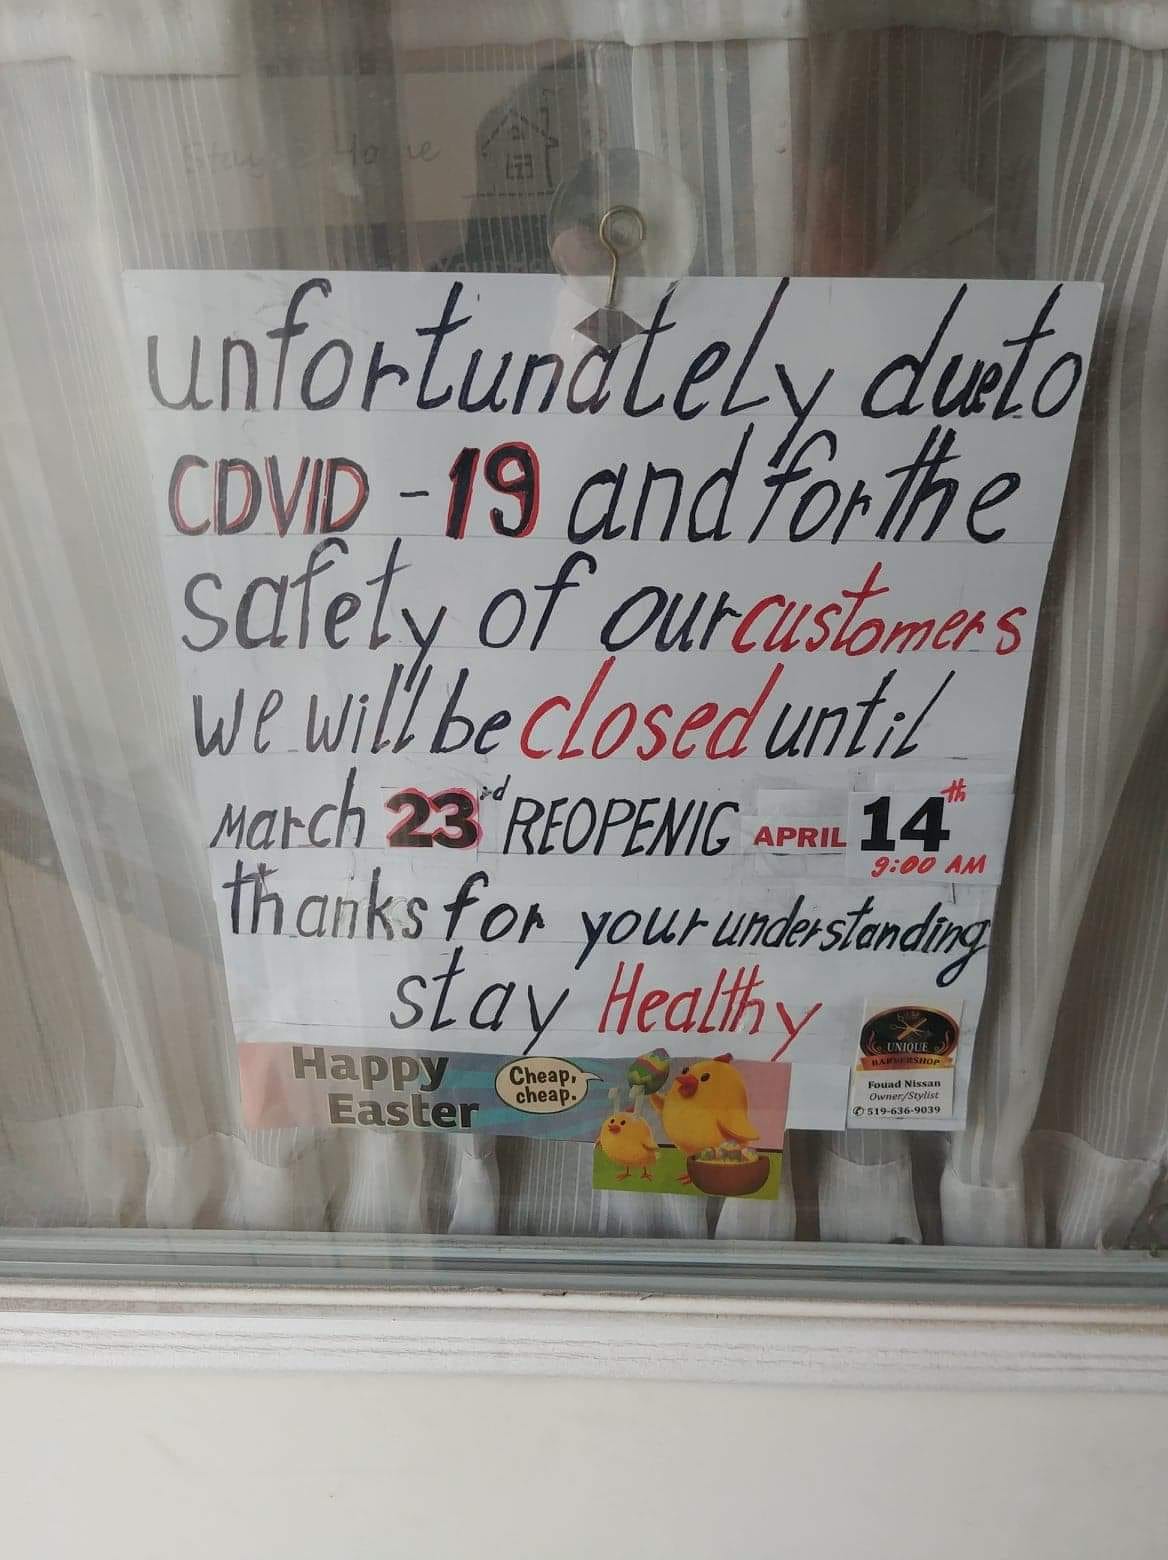 Stay @ Home
unfortunately due to
COVID - 19 and for the
safety of our customers
we will be closed until
March 23rd REOPENIG APRIL 14th
9:00 AM
thanks for your understanding
stay Healthy
Happy
Easter
Cheap,
cheap.
UNIQUE
BARBERSHOP
Fouad Nissan
Owner/Stylist
519-636-9039